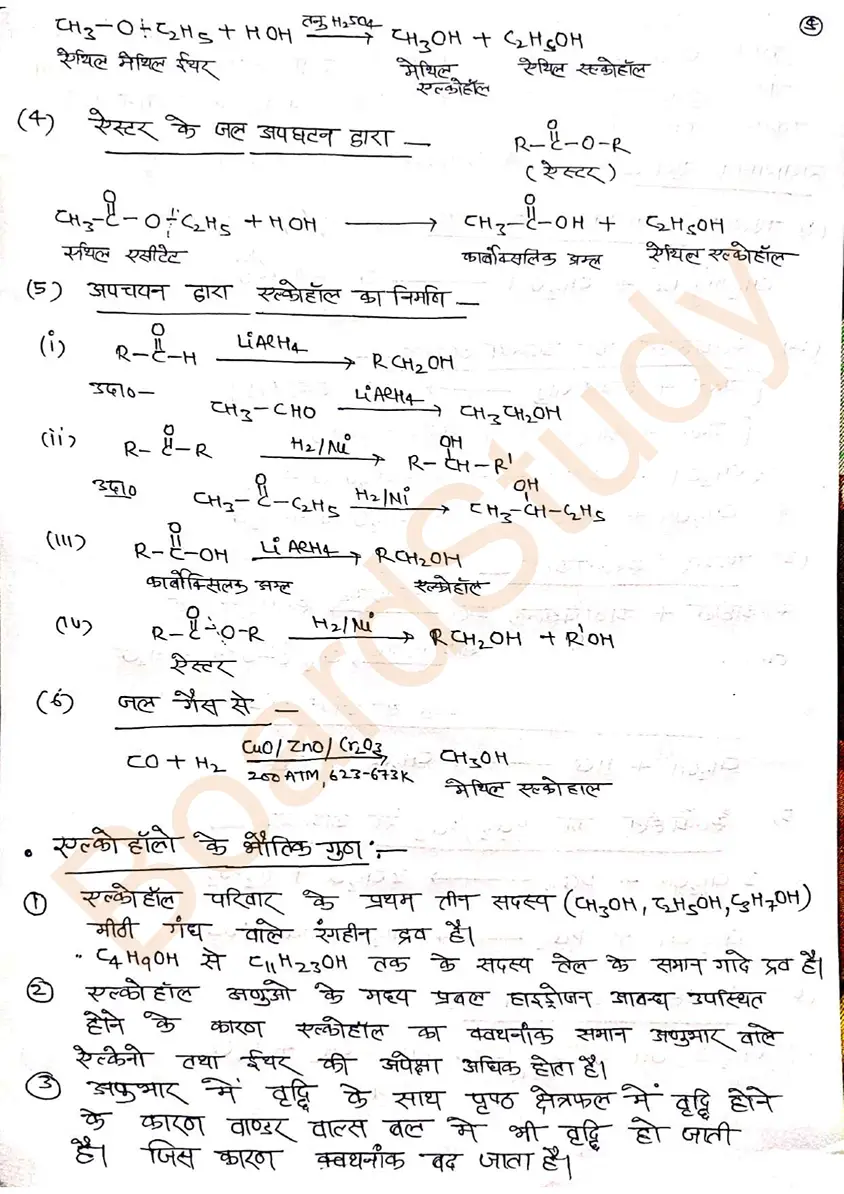 ④
CH₃-O-C₂H₅ + HOH तनु H₂SO₄ → CH₃OH + C₂H₅OH
ऐथिल मेथिल ईथर मेथिल एल्कोहॉल ऐथिल एल्कोहॉल
(4) ऐस्टर के जल अपघटन द्वारा — R-C(=O)-O-R
(ऐस्टर)
CH₃-C(=O)-O-C₂H₅ + HOH → CH₃-C(=O)-OH + C₂H₅OH
एथिल एसीटेट कार्बोक्सिलिक अम्ल ऐथिल एल्कोहॉल
(5) अपचयन द्वारा एल्कोहॉल का निर्माण —
(i) R-C(=O)-H LiAlH₄ → RCH₂OH
उदा०—
CH₃-CHO LiAlH₄ → CH₃CH₂OH
(ii) R-C(=O)-R H₂/Ni → R-CH(OH)-R'
उदा० CH₃-C(=O)-C₂H₅ H₂/Ni → CH₃-CH(OH)-C₂H₅
(iii) R-C(=O)-OH LiAlH₄ → RCH₂OH
कार्बोक्सिलक अम्ल एल्कोहॉल
(iv) R-C(=O)-O-R H₂/Ni → RCH₂OH + R'OH
ऐस्टर
(6) जल गैस से —
CO + H₂ CuO/ZnO/Cr₂O₃ 200 ATM, 623-673K → CH₃OH
मेथिल एल्कोहाल
• एल्कोहॉलो के भौतिक गुण :—
① एल्कोहॉल परिवार के प्रथम तीन सदस्य (CH₃OH, C₂H₅OH, C₃H₇OH)
मीठी गंध वाले रंगहीन द्रव है।
• C₄H₉OH से C₁₁H₂₃OH तक के सदस्य तेल के समान गाढे द्रव है।
② एल्कोहॉल अणुओ के मध्य प्रबल हाइड्रोजन आबन्ध उपस्थित
होने के कारण एल्कोहॉल का क्वथनांक समान अणुभार वाले
ऐल्केनो तथा ईथर की अपेक्षा अधिक होता है।
③ अणुभार में वृद्धि के साथ पृष्ठ क्षेत्रफल में वृद्धि होने
के कारण वाण्डर वाल्स बल मे भी वृद्धि हो जाती
है। जिस कारण क्वथनांक बढ जाता है।
BoardStudy